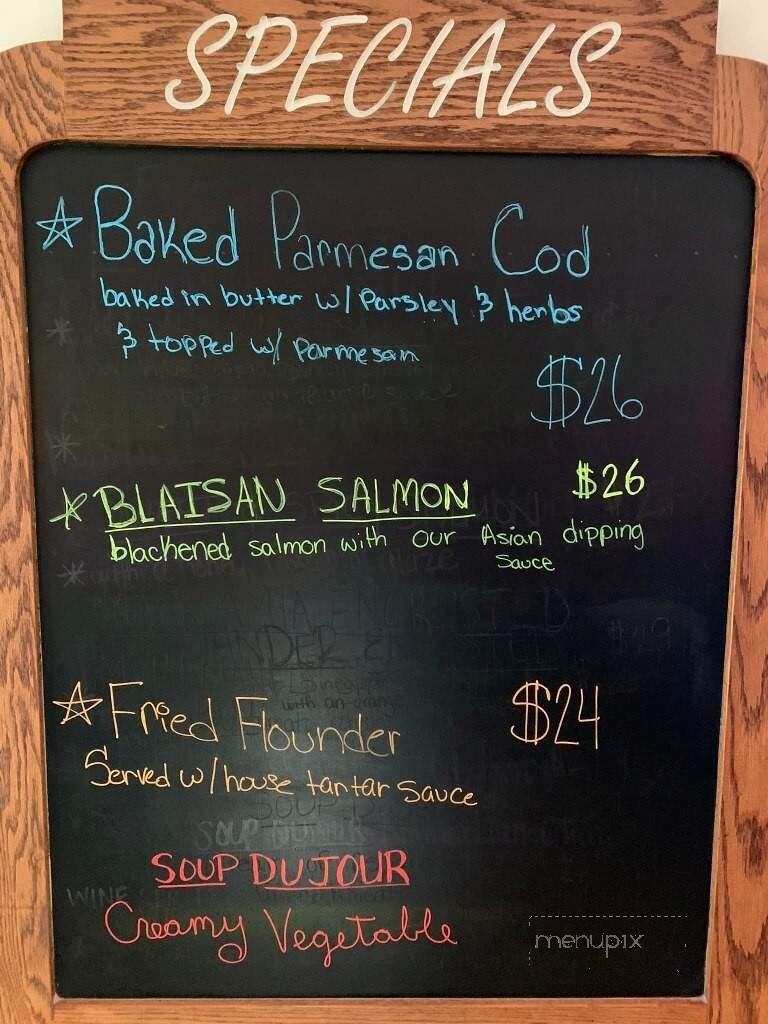 SPECIALS
Baked Parmesan Cod
baked in butter w/ Parsley & herbs
& topped w/ parmesan
$26
BLAISAN SALMON $26
blackened salmon with our Asian dipping
sauce
Fried Flounder $24
Served w/ house tantar sauce
SOUP DU JOUR
SOUP DUJOUR
WINE
Creamy Vegetable
menupix